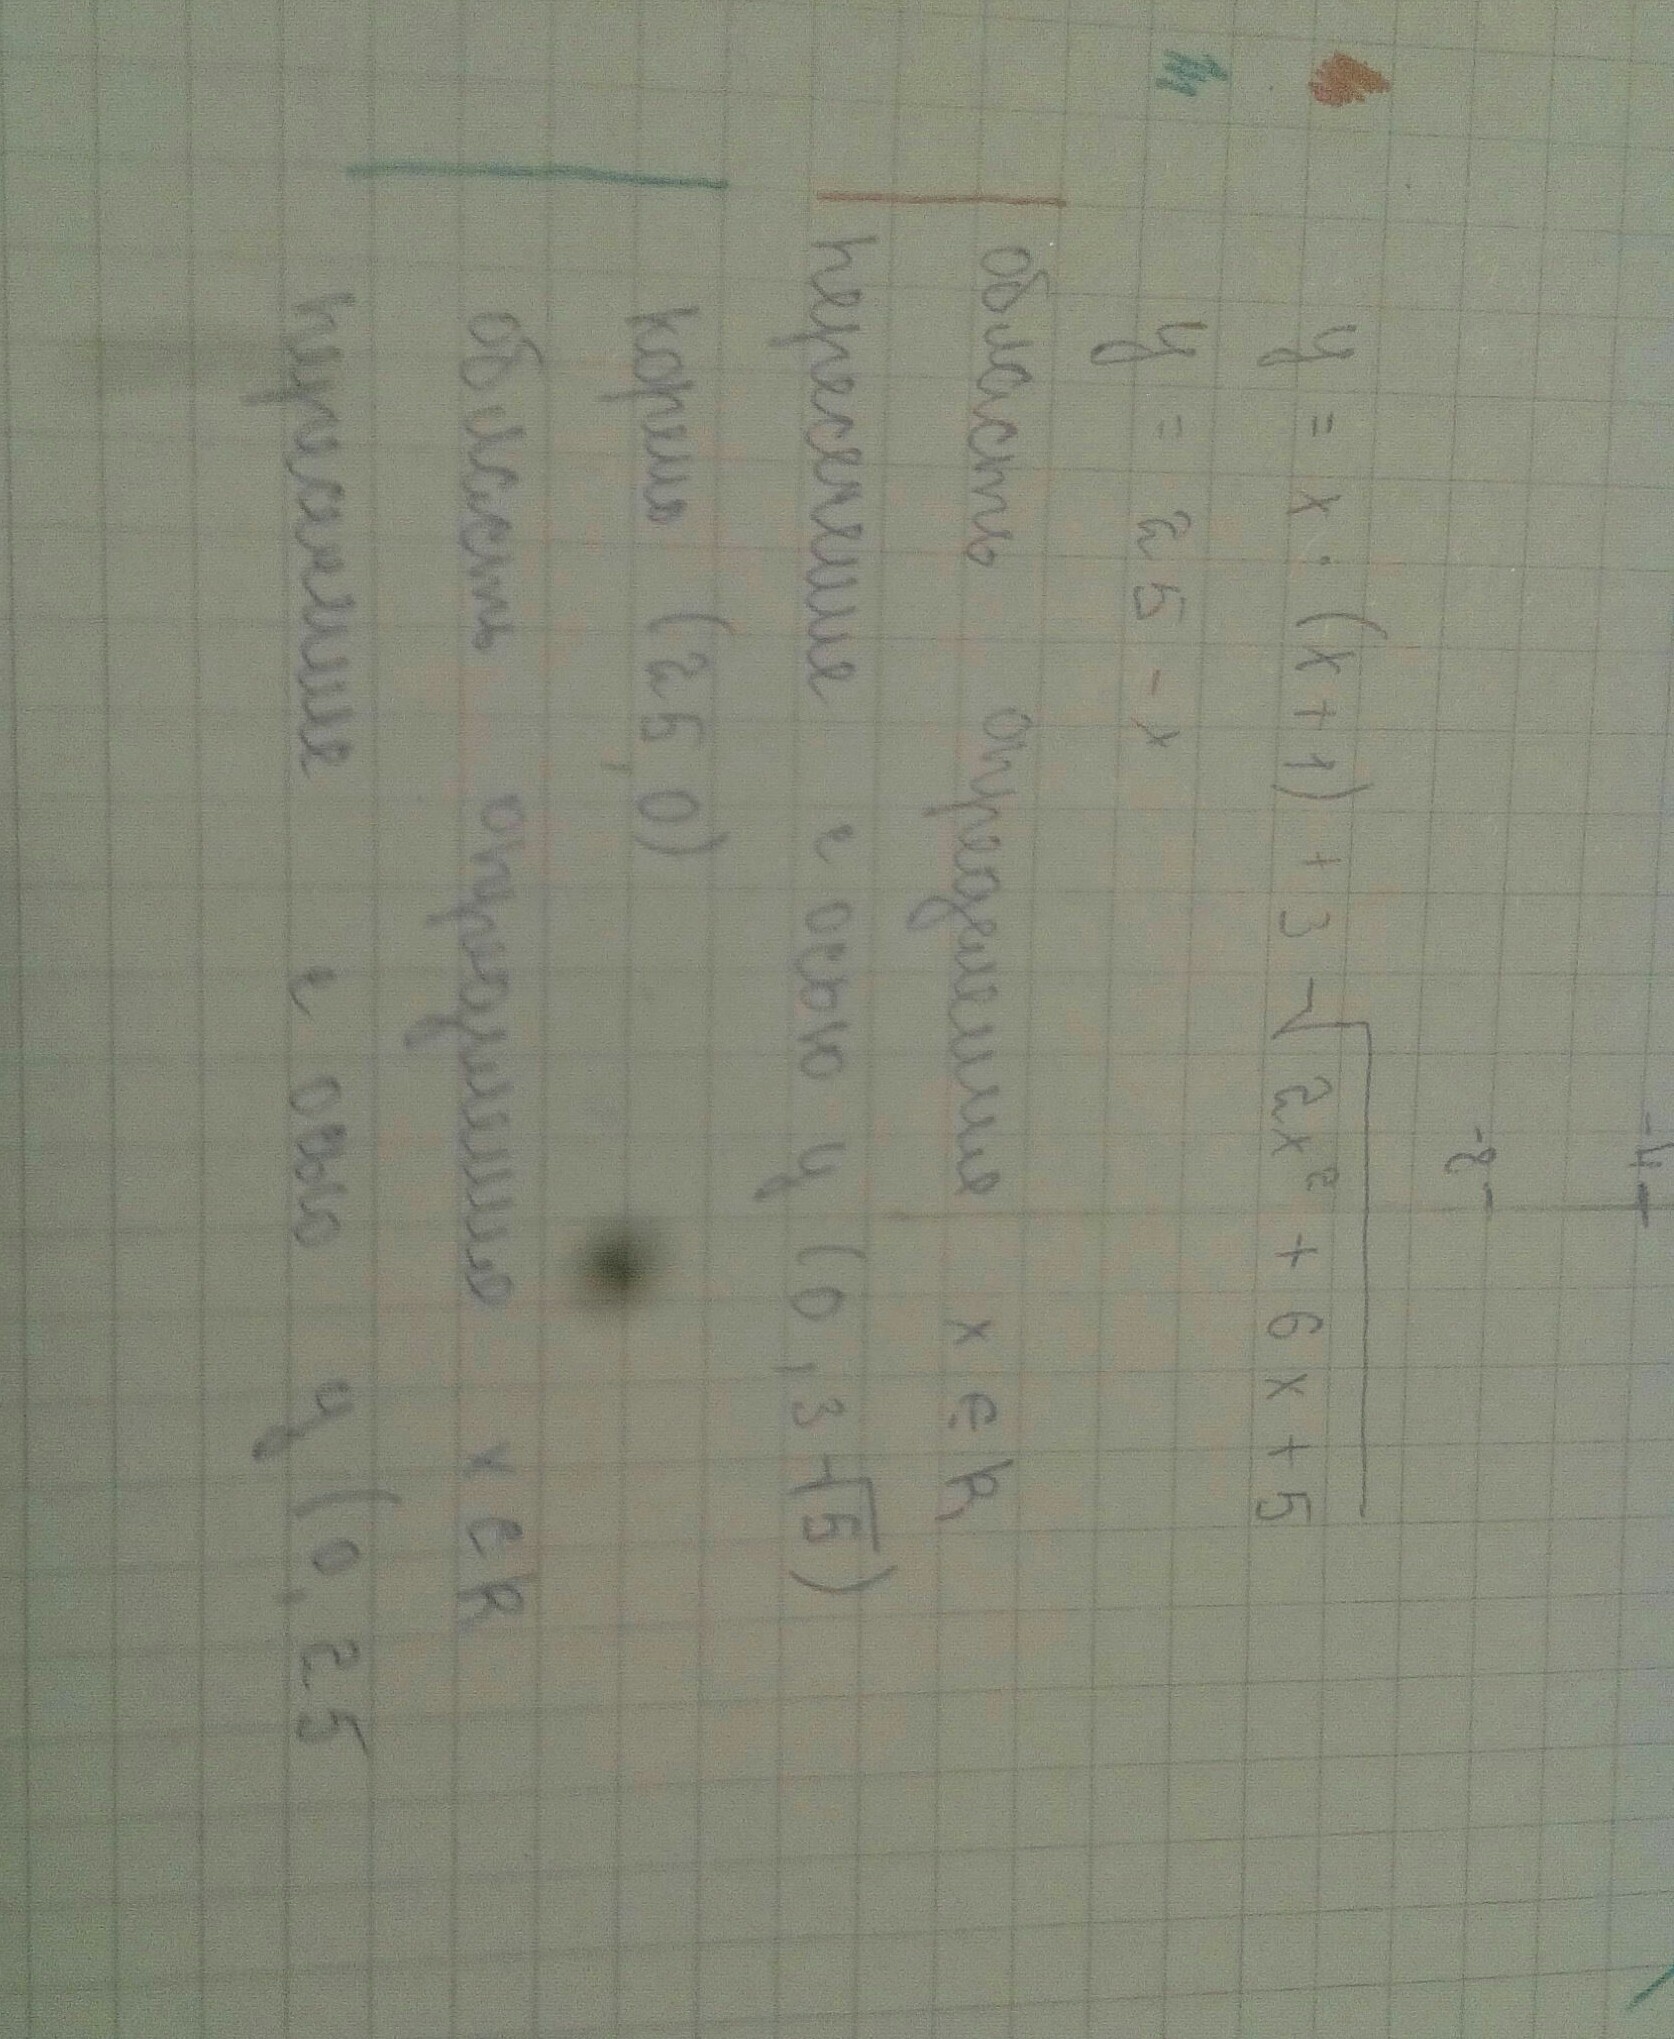 -4
-8
y = x · (x + 1) + 3 √2x² + 6x + 5
y = 25 - x
область определение x ∈ R
пересечение с осью y (0, 3√5)
корень (25, 0)
область определение x ∈ R
пересечение с осью y (0, 25